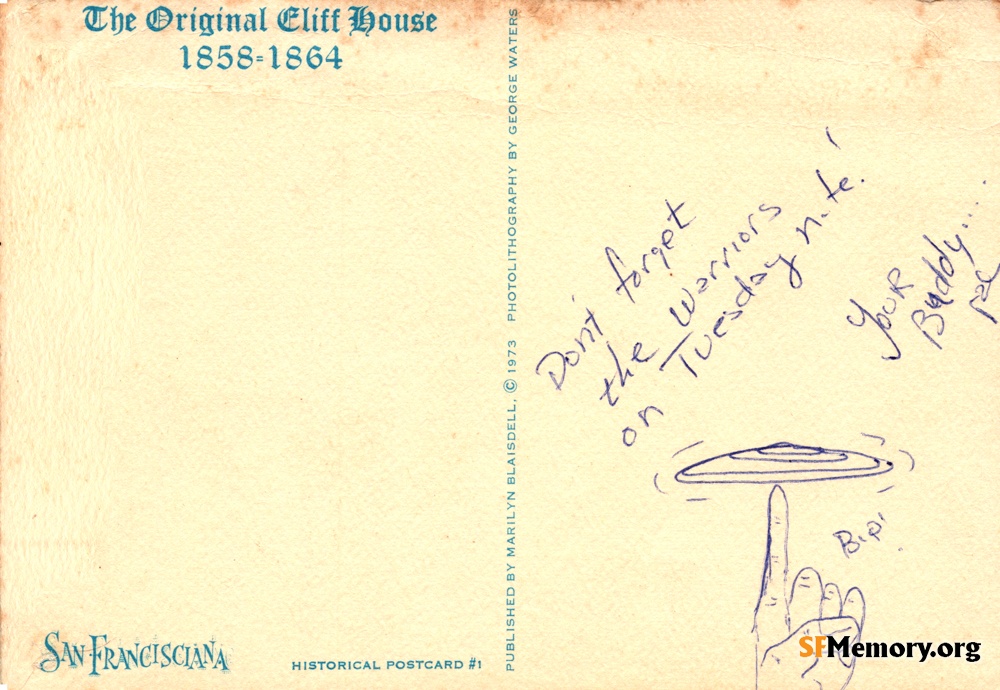 The Original Cliff House
1858=1864
PUBLISHED BY MARILYN BLAISDELL, © 1973 PHOTOLITHOGRAPHY BY GEORGE WATERS
Don't forget
the Warriors
on Tuesday nite!
Your
Buddy....
pal
Bip!
SAN FRANCISCIANA
HISTORICAL POSTCARD #1
SFMemory.org